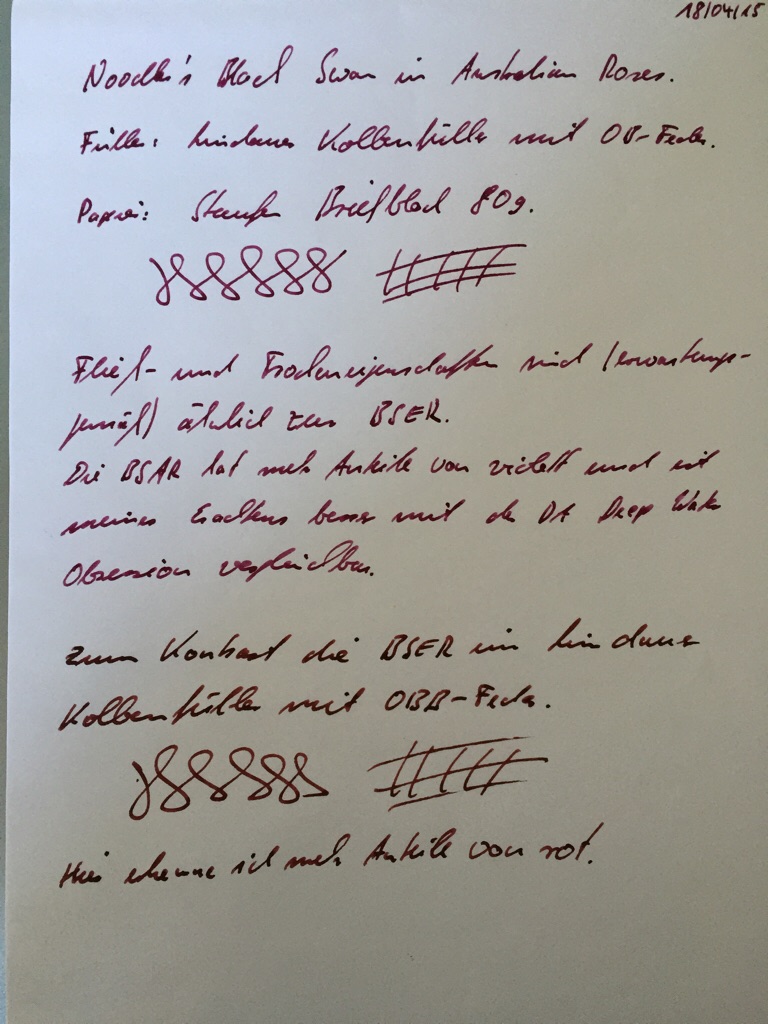 18/04/15
Noodler's Black Swan in Australian Roses.
Füller: Lindauer Kolbenfüller mit OB-Feder.
Papier: Staufen Briefblock 80g.
Fließ- und Trockeneigenschaften sind (erwartungs-
gemäß) ähnlich zur BSER.
Die BSAR hat mehr Anteile von violett und ist
meines Erachtens besser mit der DA Deep Water
Obsession vergleichbar.
Zum Kontrast die BSER im Lindauer
Kolbenfüller mit OBB-Feder.
Hier erkenne ich mehr Anteile von rot.